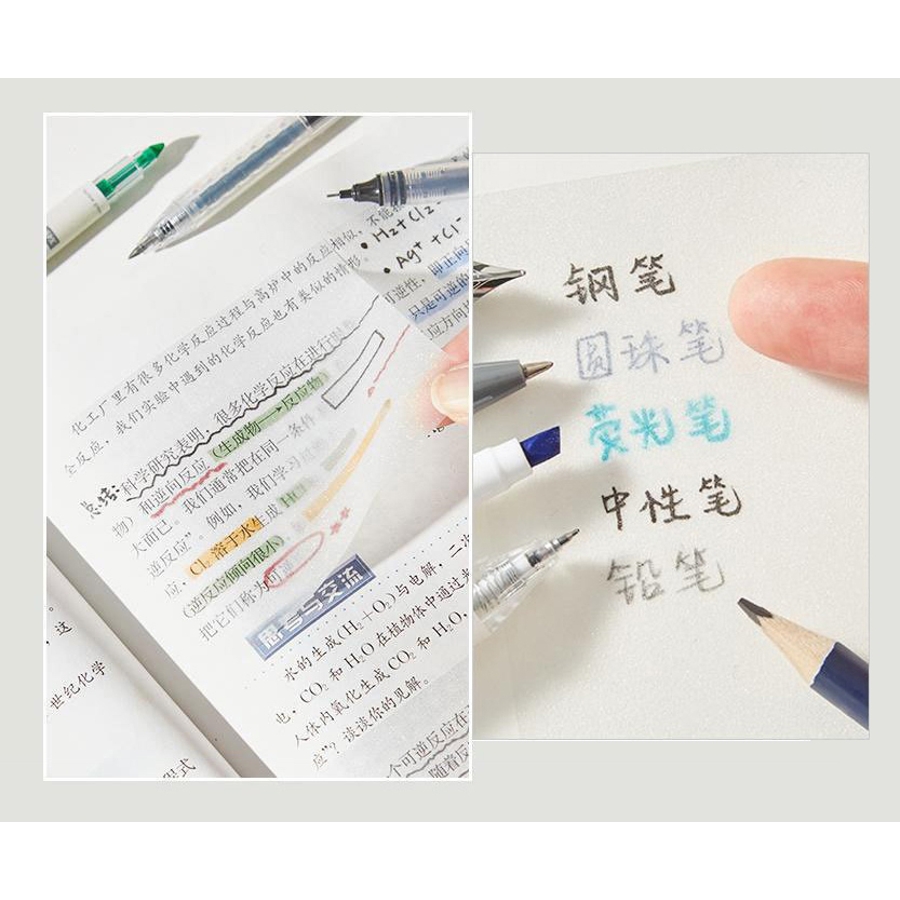 不能
• H₂+Cl₂
• Ag⁺+Cl⁻
可逆性,即正向
只是可逆的
应方向
化工厂里有很多化学反应过程与高炉中的反应相似,
全反应,我们实验中遇到的化学反应也有类似的情形。
总结:科学研究表明,很多化学反应在进行
(生成物→反应物)
物)和逆向反应
大而已。我们通常把在同一条件
逆反应”。例如,我们学习
应,Cl₂溶于水生成HCl
(逆反应倾向很小)
把它们称为可逆
思考与交流
水的生成(H₂+O₂)与电解,二次
电,CO₂和H₂O在植物体中通过光
人体内氧化生成CO₂和H₂O,
应”?谈谈你的见解。
个可逆反应在
随着反
,这
世纪化学
程式
钢笔
圆珠笔
荧光笔
中性笔
铅笔